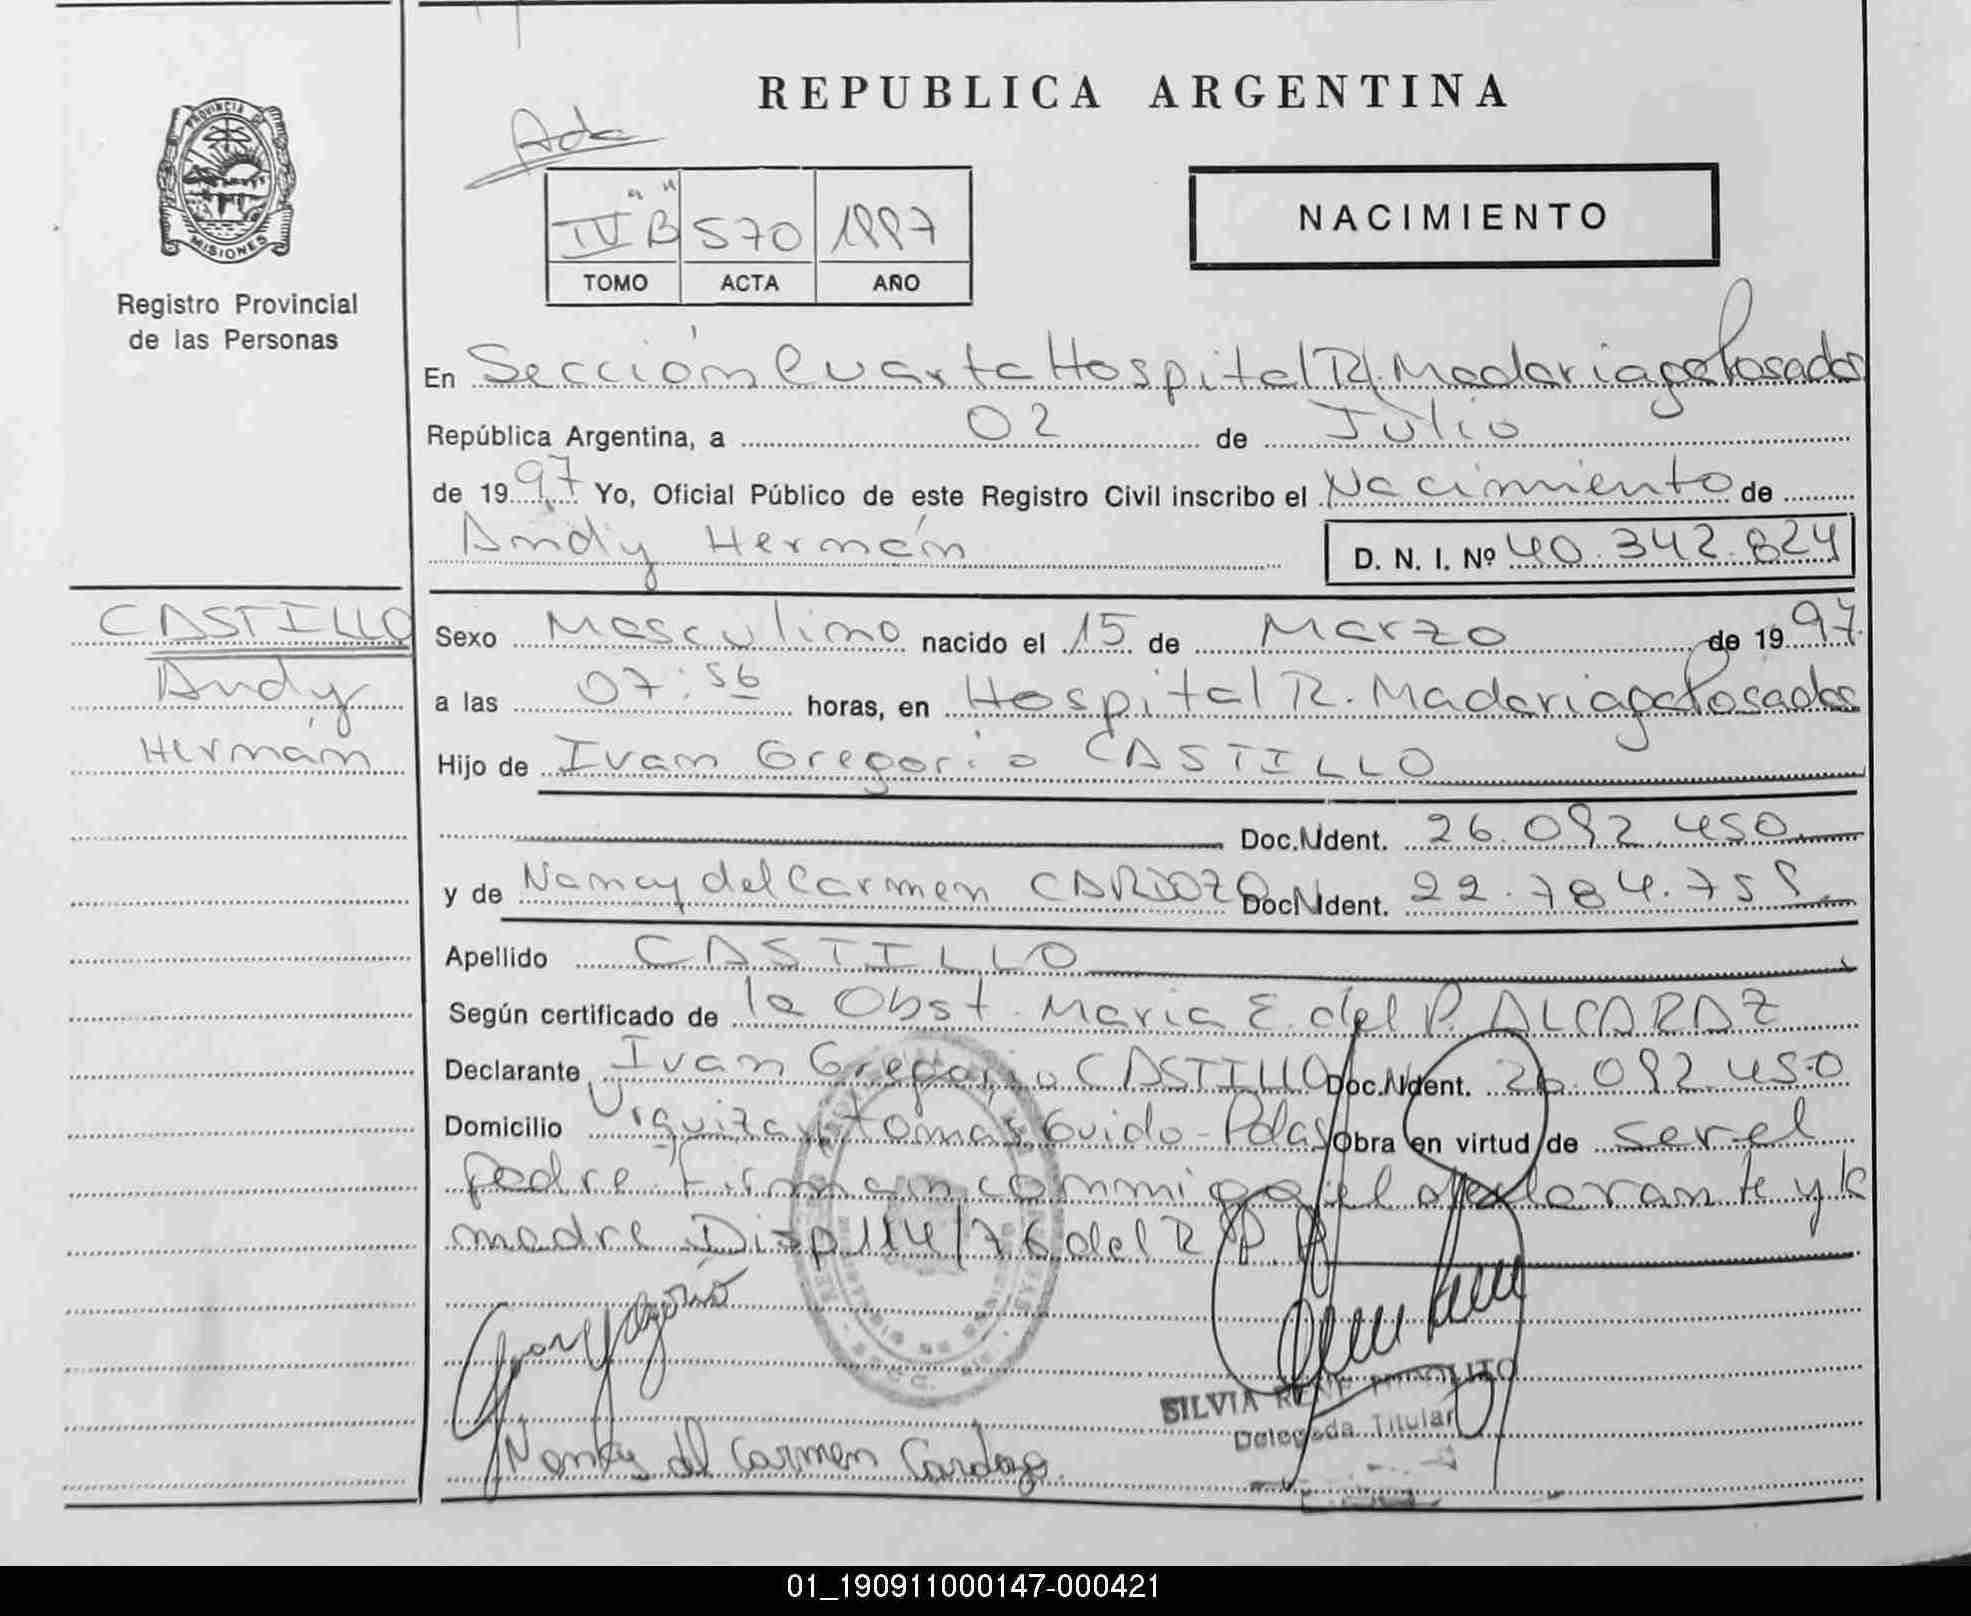 REPUBLICA ARGENTINA
PROVINCIA DE
MISIONES
Registro Provincial
de las Personas
IV "B" 570 1997
TOMO ACTA AÑO
NACIMIENTO
En Sección Cuarta Hospital R. Madariaga Posadas
República Argentina, a 02 de Julio
de 1997 Yo, Oficial Público de este Registro Civil inscribo el Nacimiento de
Andy Hernán D. N. I. Nº 40.342.824
CASTILLO
Andy
Hernán
Sexo Masculino nacido el 15 de Marzo de 1997
a las 07:56 horas, en Hospital R. Madariaga Posadas
Hijo de Ivan Gregorio CASTILLO
Doc. Ident. 26.092.450
y de Nancy del Carmen CARDOZO Doc. Ident. 22.784.758
Apellido CASTILLO
Según certificado de la Obst. Maria E. del P. ALCARAZ
Declarante Ivan Gregorio CASTILLO Doc. Ident. 26.092.450
Domicilio Urquiza y Tomas Guido - Pdas Obra en virtud de ser el
padre. Firman conmigo el declarante y la
madre Disp 114/76 del R.P.P.
Nancy del Carmen Cardozo
SILVIA RENE
Delegada Titular
01_190911000147-000421